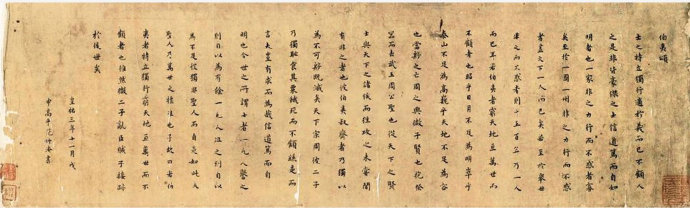 伯夷頌
士之特立獨行適於義而已不顧人
之是非皆豪傑之士信道篤而自知
明者也一家非之力行而不惑者寡
矣至於一國一州非之力行而不惑
者蓋天下一人而已矣若至於舉世
非之力行而不惑者則千五百年乃一人
而已耳若伯夷者窮天地亘萬世而
不顧者也昭乎日月不足為明崒乎
泰山不足為高巍乎天地不足為容
也當殷之亡周之興微子賢也抱祭
器而去武王周公聖也從天下之賢
士與天下之諸侯而往攻之未嘗聞
有非之者也彼伯夷叔齊者乃獨以
為不可殷既滅矣天下宗周彼二子
乃獨恥食其粟餓死而不顧繇是而
言夫豈有求而為哉信道篤而自知
明也今世之所謂士者一凡人譽之
則自以為有餘一凡人沮之則自以
為不足彼獨非聖人而自是如此夫
聖人乃萬世之標準也予故曰若伯
夷者特立獨行窮天地亘萬世而不
顧者也雖然微二子亂臣賊子接跡
於後世矣
皇祐三年十一月戊
申高平范仲淹書